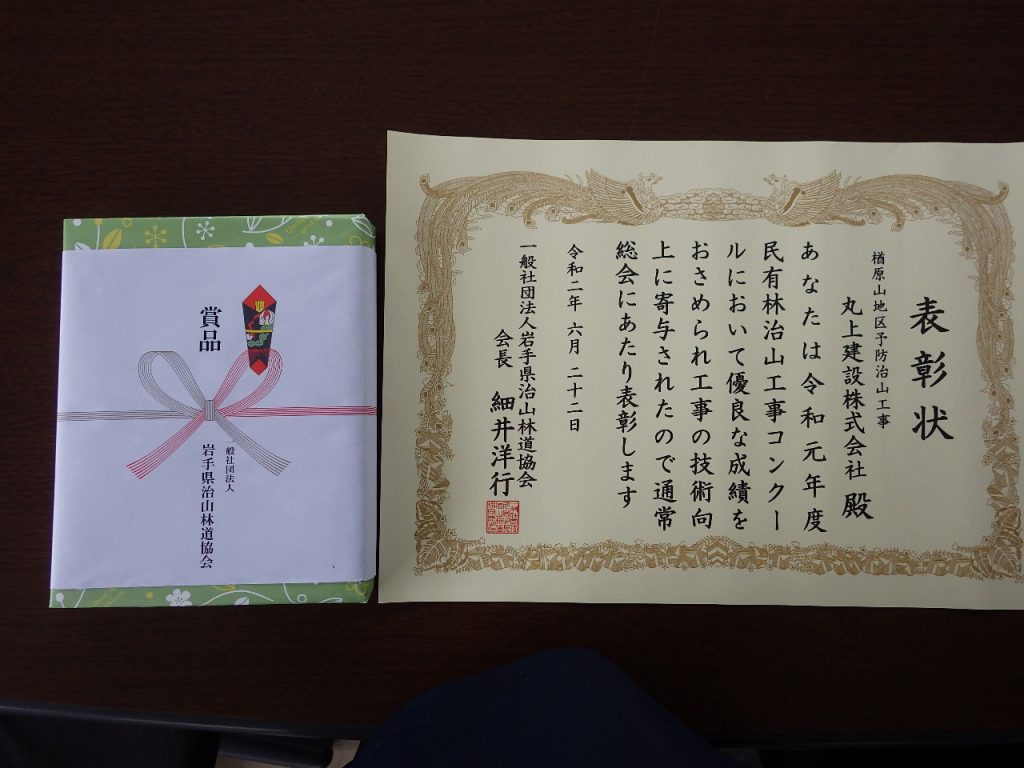 表彰状
楢原山地区予防治山工事
丸上建設株式会社 殿
あなたは令和元年度
民有林治山工事コンクー
ルにおいて優良な成績を
おさめられ工事の技術向
上に寄与されたので通常
総会にあたり表彰します
令和二年 六月 二十二日
一般社団法人岩手県治山林道協会
会長 細井洋行
賞品
一般社団法人
岩手県治山林道協会